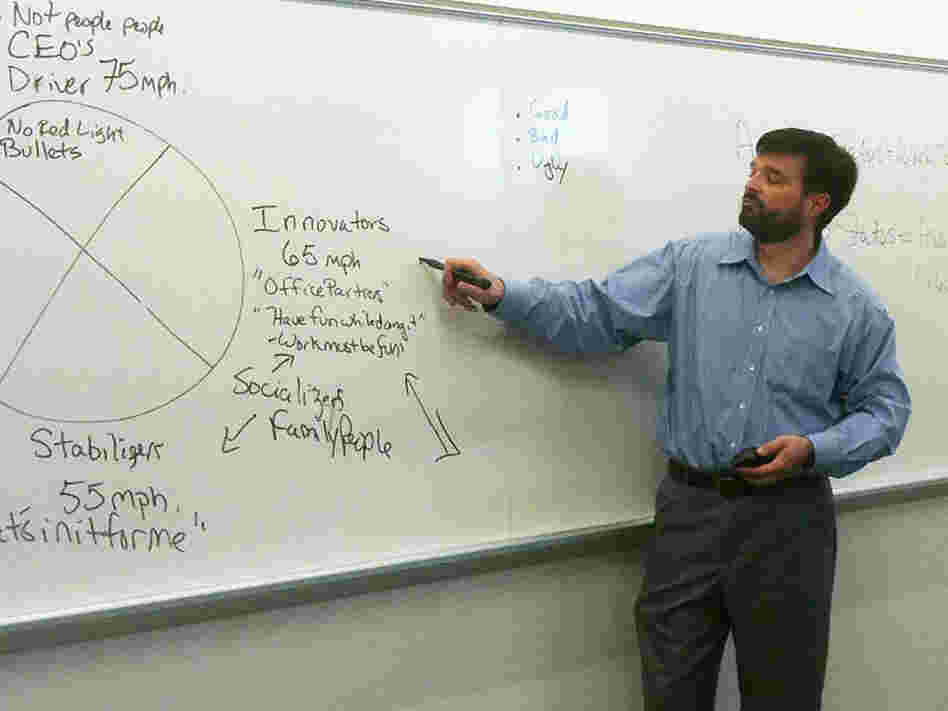 Not people people
CEO's
Driver 75mph.
No Red Light
Bullets
• Good
• Bad
• Ugly
Innovators
65 mph
"Office Partners"
"Have fun while doing it"
-Work must be fun
Socializers
Family People
Stabilizers
55 mph.
in it for me"